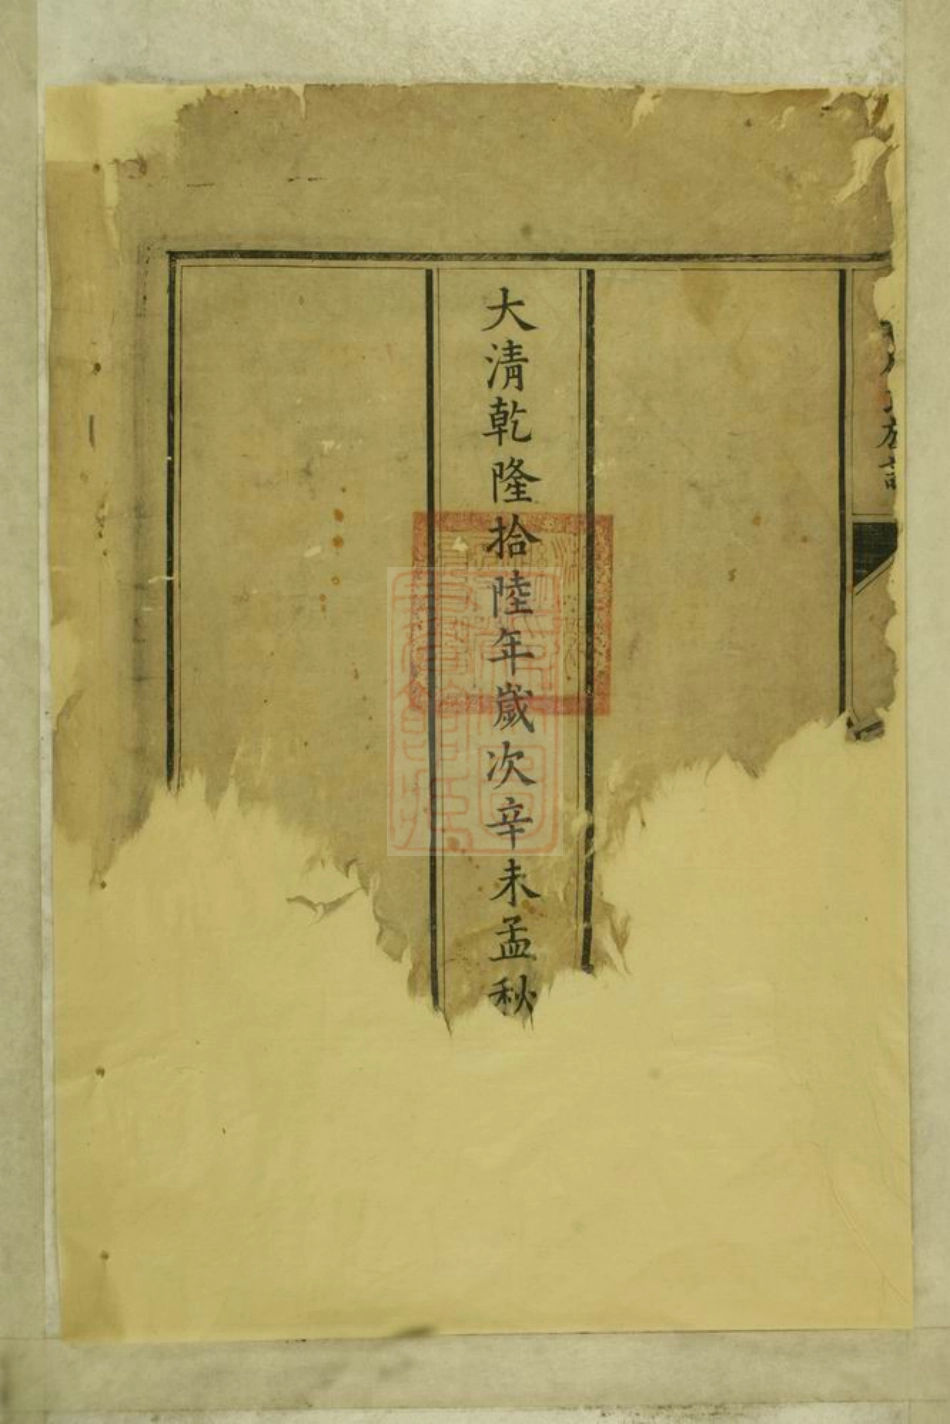 氏族譜
大清乾隆拾陸年歲次辛未孟秋